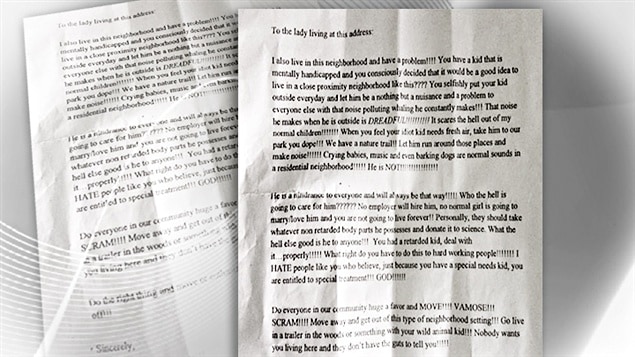 To the lady living at this address:
I also live in this neighborhood and have a problem!!!! You have a kid that is
mentally handicapped and you consciously decided that it would be a good idea to
live in a close proximity neighborhood like this???? You selfishly put your kid
outside everyday and let him be a nothing but a nuisance and a problem to
everyone else with that noise polluting whaling he constantly makes!!! That noise
he makes when he is outside is DREADFUL!!!!!!!!!! It scares the hell out of my
normal children!!!!!!! When you feel your idiot kid needs fresh air, take him to our
park you dope!!! We have a nature trail!! Let him run around those places and
make noise!!!!!! Crying babies, music and even barking dogs are normal sounds in
a residential neighborhood!!!!! He is NOT!!!!!!!!!!!!!!!!
He is a hindrance to everyone and will always be that way!!!!! Who the hell is
going to care for him?????? No employer will hire him, no normal girl is going to
marry/love him and you are not going to live forever!! Personally, they should take
whatever non retarded body parts he possesses and donate it to science. What the
hell else good is he to anyone!!! You had a retarded kid, deal with
it...properly!!!!! What right do you have to do this to hard working people!!!!!!! I
HATE people like you who believe, just because you have a special needs kid, you
are entitled to special treatment!!! GOD!!!!!!
Do everyone in our community huge a favor and MOVE!!!! VAMOSE!!!
SCRAM!!!! Move away and get out of this type of neighborhood setting!!! Go live
in a trailer in the woods or something with your wild animal kid!!! Nobody wants
you living here and they don't have the guts to tell you!!!!!
Do the right thing and move
off!!!
Sincerely,